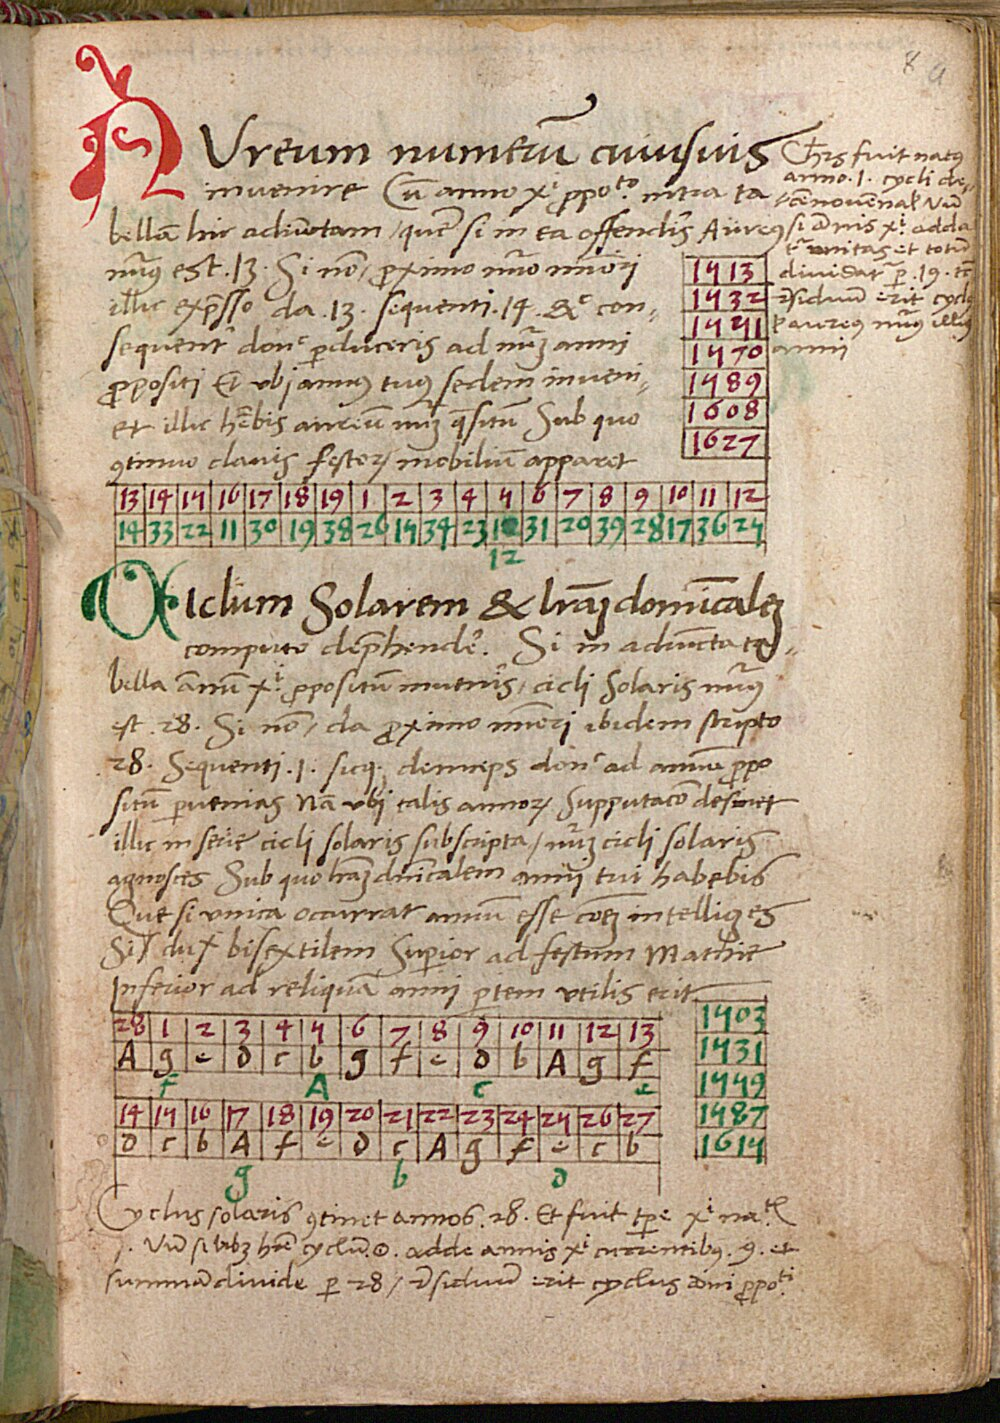 8 a
AUreum numerū cuiusuis
inuenire Cū anno xi ppoto. intra ta
bellā hic adiūctam / quē si in ea offendis Aureus
nūus est .13. Si nō / proximo nūo minori
illic exp̄sso da .13. sequenti .14. &c con-
sequent̄ donc pduceris ad nūȝ anni
propositi Et vbi annus tuus sedem inueni-
et illic hēbis aureū nūȝ q̄sitū Sub quo
9tinuo clauis festoꝝ mobiliū apparet
Chrs fuit natus
anno .1. cycli de-
cēnouenal Vn̄
si ānnis xi adda
t̄ vnitas et totū
diuidat̄ p .19. tc̄
residuū erit cyclus
aureus nūus illius
anni
1413
1432
1451
1470
1489
1608
1627
13 14 15 16 17 18 19 1 2 3 4 5 6 7 8 9 10 11 12
14 33 22 11 30 19 38 26 15 34 23 12 31 20 39 28 17 36 25
12
CIclum Solarem & lrāȝ domīcaleȝ
computo dep̄hendē. Si in adiūcta ta-
bella annū xi propositum inueniſ / cicli Solaris nūus
est .28. Si nō / da proximo mīori ibidem scripto
28. Sequenti .1. sicqȝ deinceps donc ad annū ppo
sitū puenias Nā vbi talis annoꝝ Supputacō desinet
illic in serie cicli solaris subscripta / nūȝ cicli solaris
agnosces Sub quo lrāȝ dnīcalem anni tui habebis
Que si vnica occurrat annū esse cōeȝ intelliges
Si duę bisextilem Superior ad festum Mathie
Inferior ad reliquā anni ptem vtilis erit
28 1 2 3 4 5 6 7 8 9 10 11 12 13
A g e D c b g f e D b A g f
f A c e
14 15 16 17 18 19 20 21 22 23 24 25 26 27
D c b A f e D c A g f e c b
g b D
1503
1531
1559
1587
1615
Cyclus solaris 9tinet annos .28. Et fuit tpe xi nat
Vn̄ si hūc cyclū ☉. adde annis xi currentibus .9. et
summā diuide p 28 / residuū erit cyclus āni ppoti